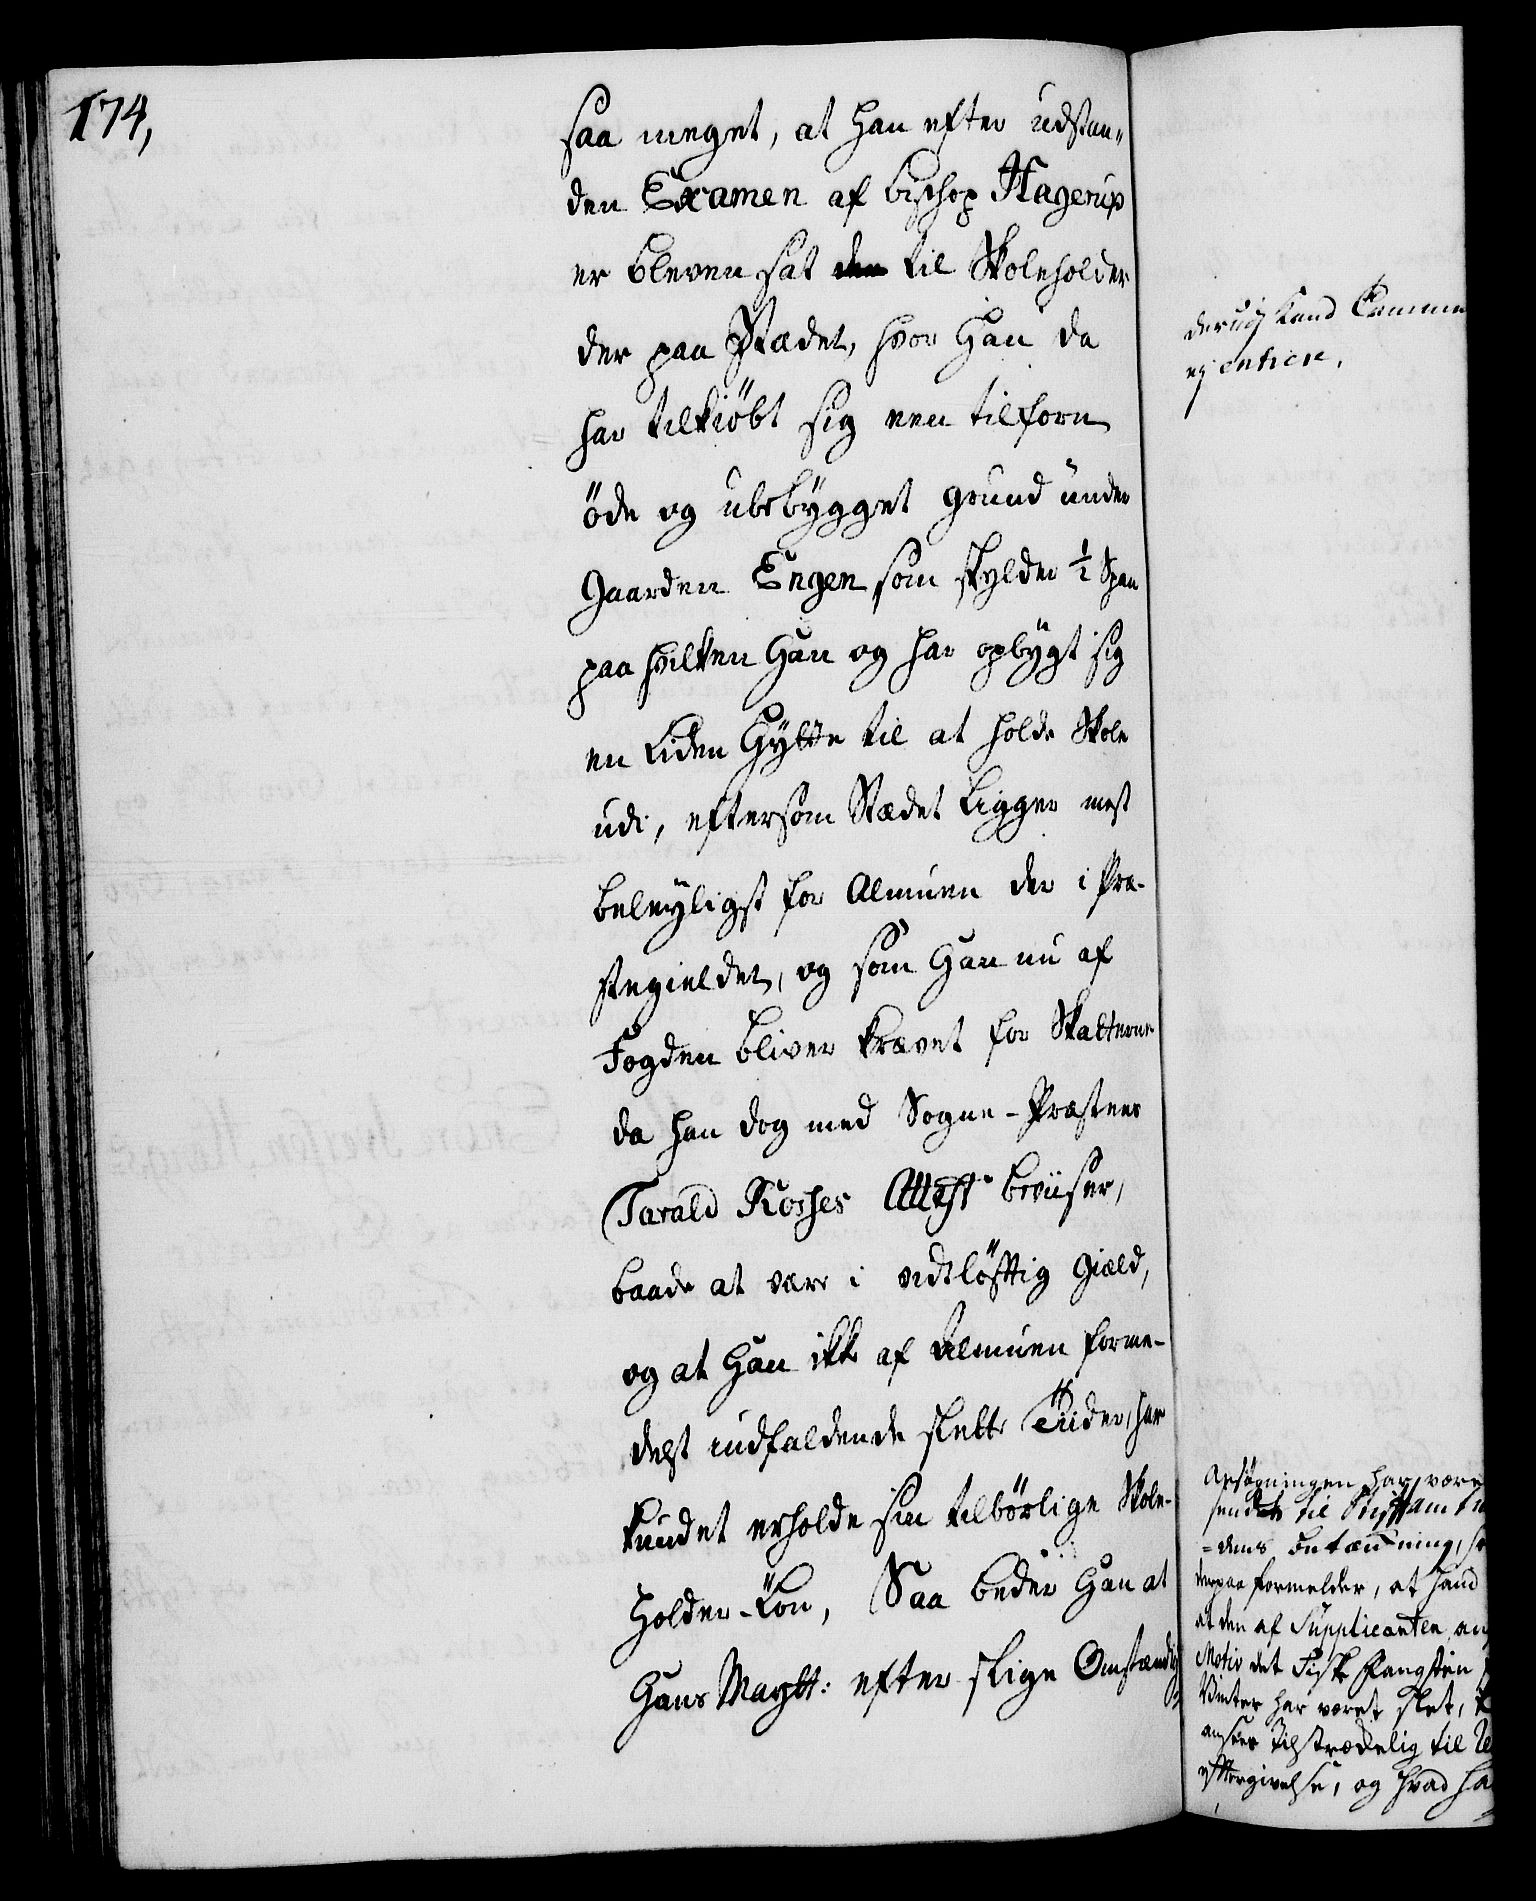 174,
saa meget, at han efter udstan„
den Examen af bischop Hagerup
er bleven sat til Skoleholder
der paa Stædet, hvor Han da
har tilkiöbt sig een tilforn
öde og ubebygget grund under
Gaarden Engen som skylder ½ Span
paa hvilken Han og har opbygt sig
en Liden Hytte til at holde Skole
udi, eftersom Stædet Ligger mest
beleyligst for Almuen der i Præ-
stegieldet, og som Han nu af
Fogden bliver krævet for Skatterne
da han dog med Sogne-Præstens
Tarald Rosses Attest beviiser,
baade at være i vidtlöftig Giæld,
og at Han ikke af Almuen forme-
delst indfaldende slette Tiider, har
kundet erholde sin tilbörlige Skole-
holder-Lön, Saa beder Han at
Hans Maytt: efter slige Omstændig
derudj kand Commu
ej entrere.
Ansögningen har være
sendt til Stiftamtm
=dens betænkning, so
derpaa formelder, at hand
at den af Supplicanten an
Motiv det Fiske Fangsten
Vinter har været slet,
ansees tilstrækkelig til
efftergivelse, og hvad ha